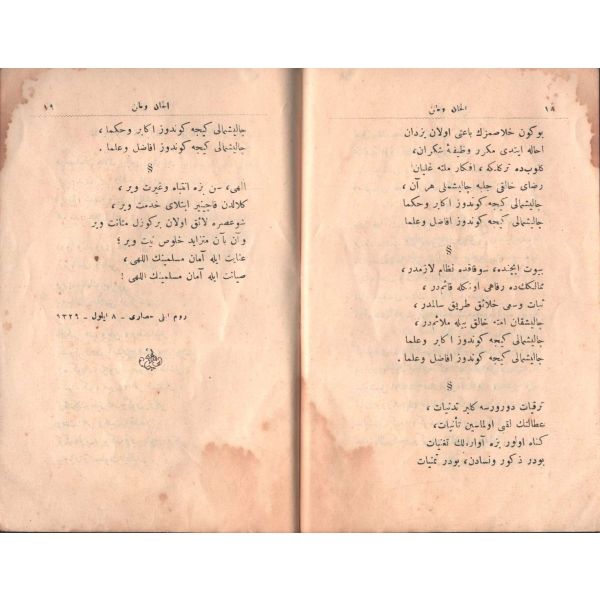 ١٨
الحان وطن
بوكون خلاصمزك باعثى اولان يزدان
احاله ايتدى مكرر وظيفهٔ شكران،
قلوب‌ده تركلكه، افكار ملته غليان
رضاى خالق جلبه چاليشملى هر آن،
چاليشملى كيجه كوندوز اكابر وحكما
چاليشملى كيجه كوندوز افاضل وعلما
§
بيوت ايچنده، سوقاقده نظام لازمدر،
ممالكك‌ده رفاهى اونكله قائم‌در،
ثبات وسعى خلائق طريق سالمدر،
چاليشقان امته خالق بيله ملائم‌در،
چاليشملى كيجه كوندوز اكابر وعلما
چاليشملى كيجه كوندوز افاضل وعلما.
§
ترقيات دورورسه كلير تدنيات،
عطالتك لقى اولماسين تأنيات،
كناه اولور بزه آواره‌لك تغنيات
بودر ذكور ونسادن، بودر تمنيات
١٩
الحان وطن
چاليشملى كيجه كوندوز اكابر وحكما،
چاليشملى كيجه كوندوز افاضل وعلما.
§
الهى، سن بزه انتباه وغيرت وير،
كلالدن قاچينير ابتلاى خدمت وير،
شو عصره لائق اولان بر كوزل متانت وير
وآن بآن متزايد خلوص نيت وير؛
عنايت ايله آمان مسلمينك اللهى،
صيانت ايله آمان مسلمينك اللهى!
روم ايلى حصارى - ٨ ايلول - ١٣٢٩